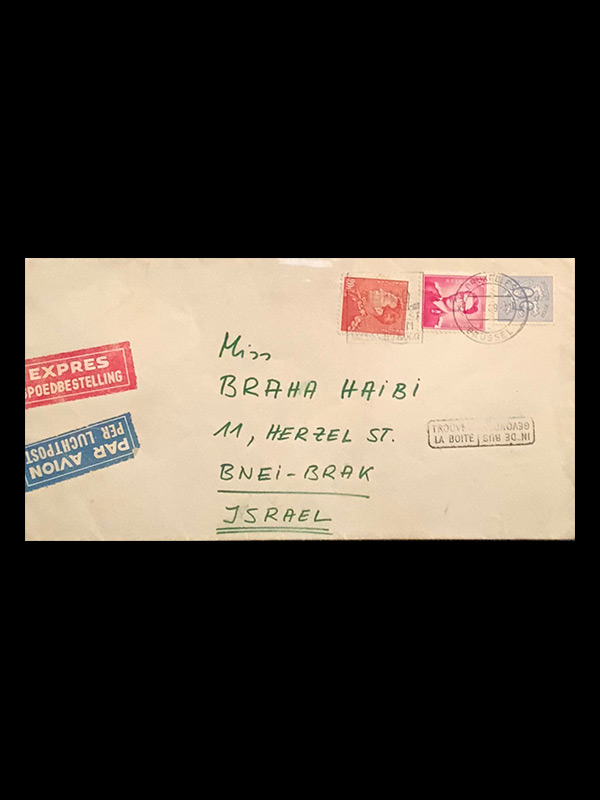 EXPRES
SPOEDBESTELLING
PAR AVION
PER LUCHTPOST
Miss
BRAHA HAIBI
11, HERZEL ST.
BNEI-BRAK
ISRAEL
TROUVE GEVONDEN
LA BOITE IN DE BUS
BRUSSEL